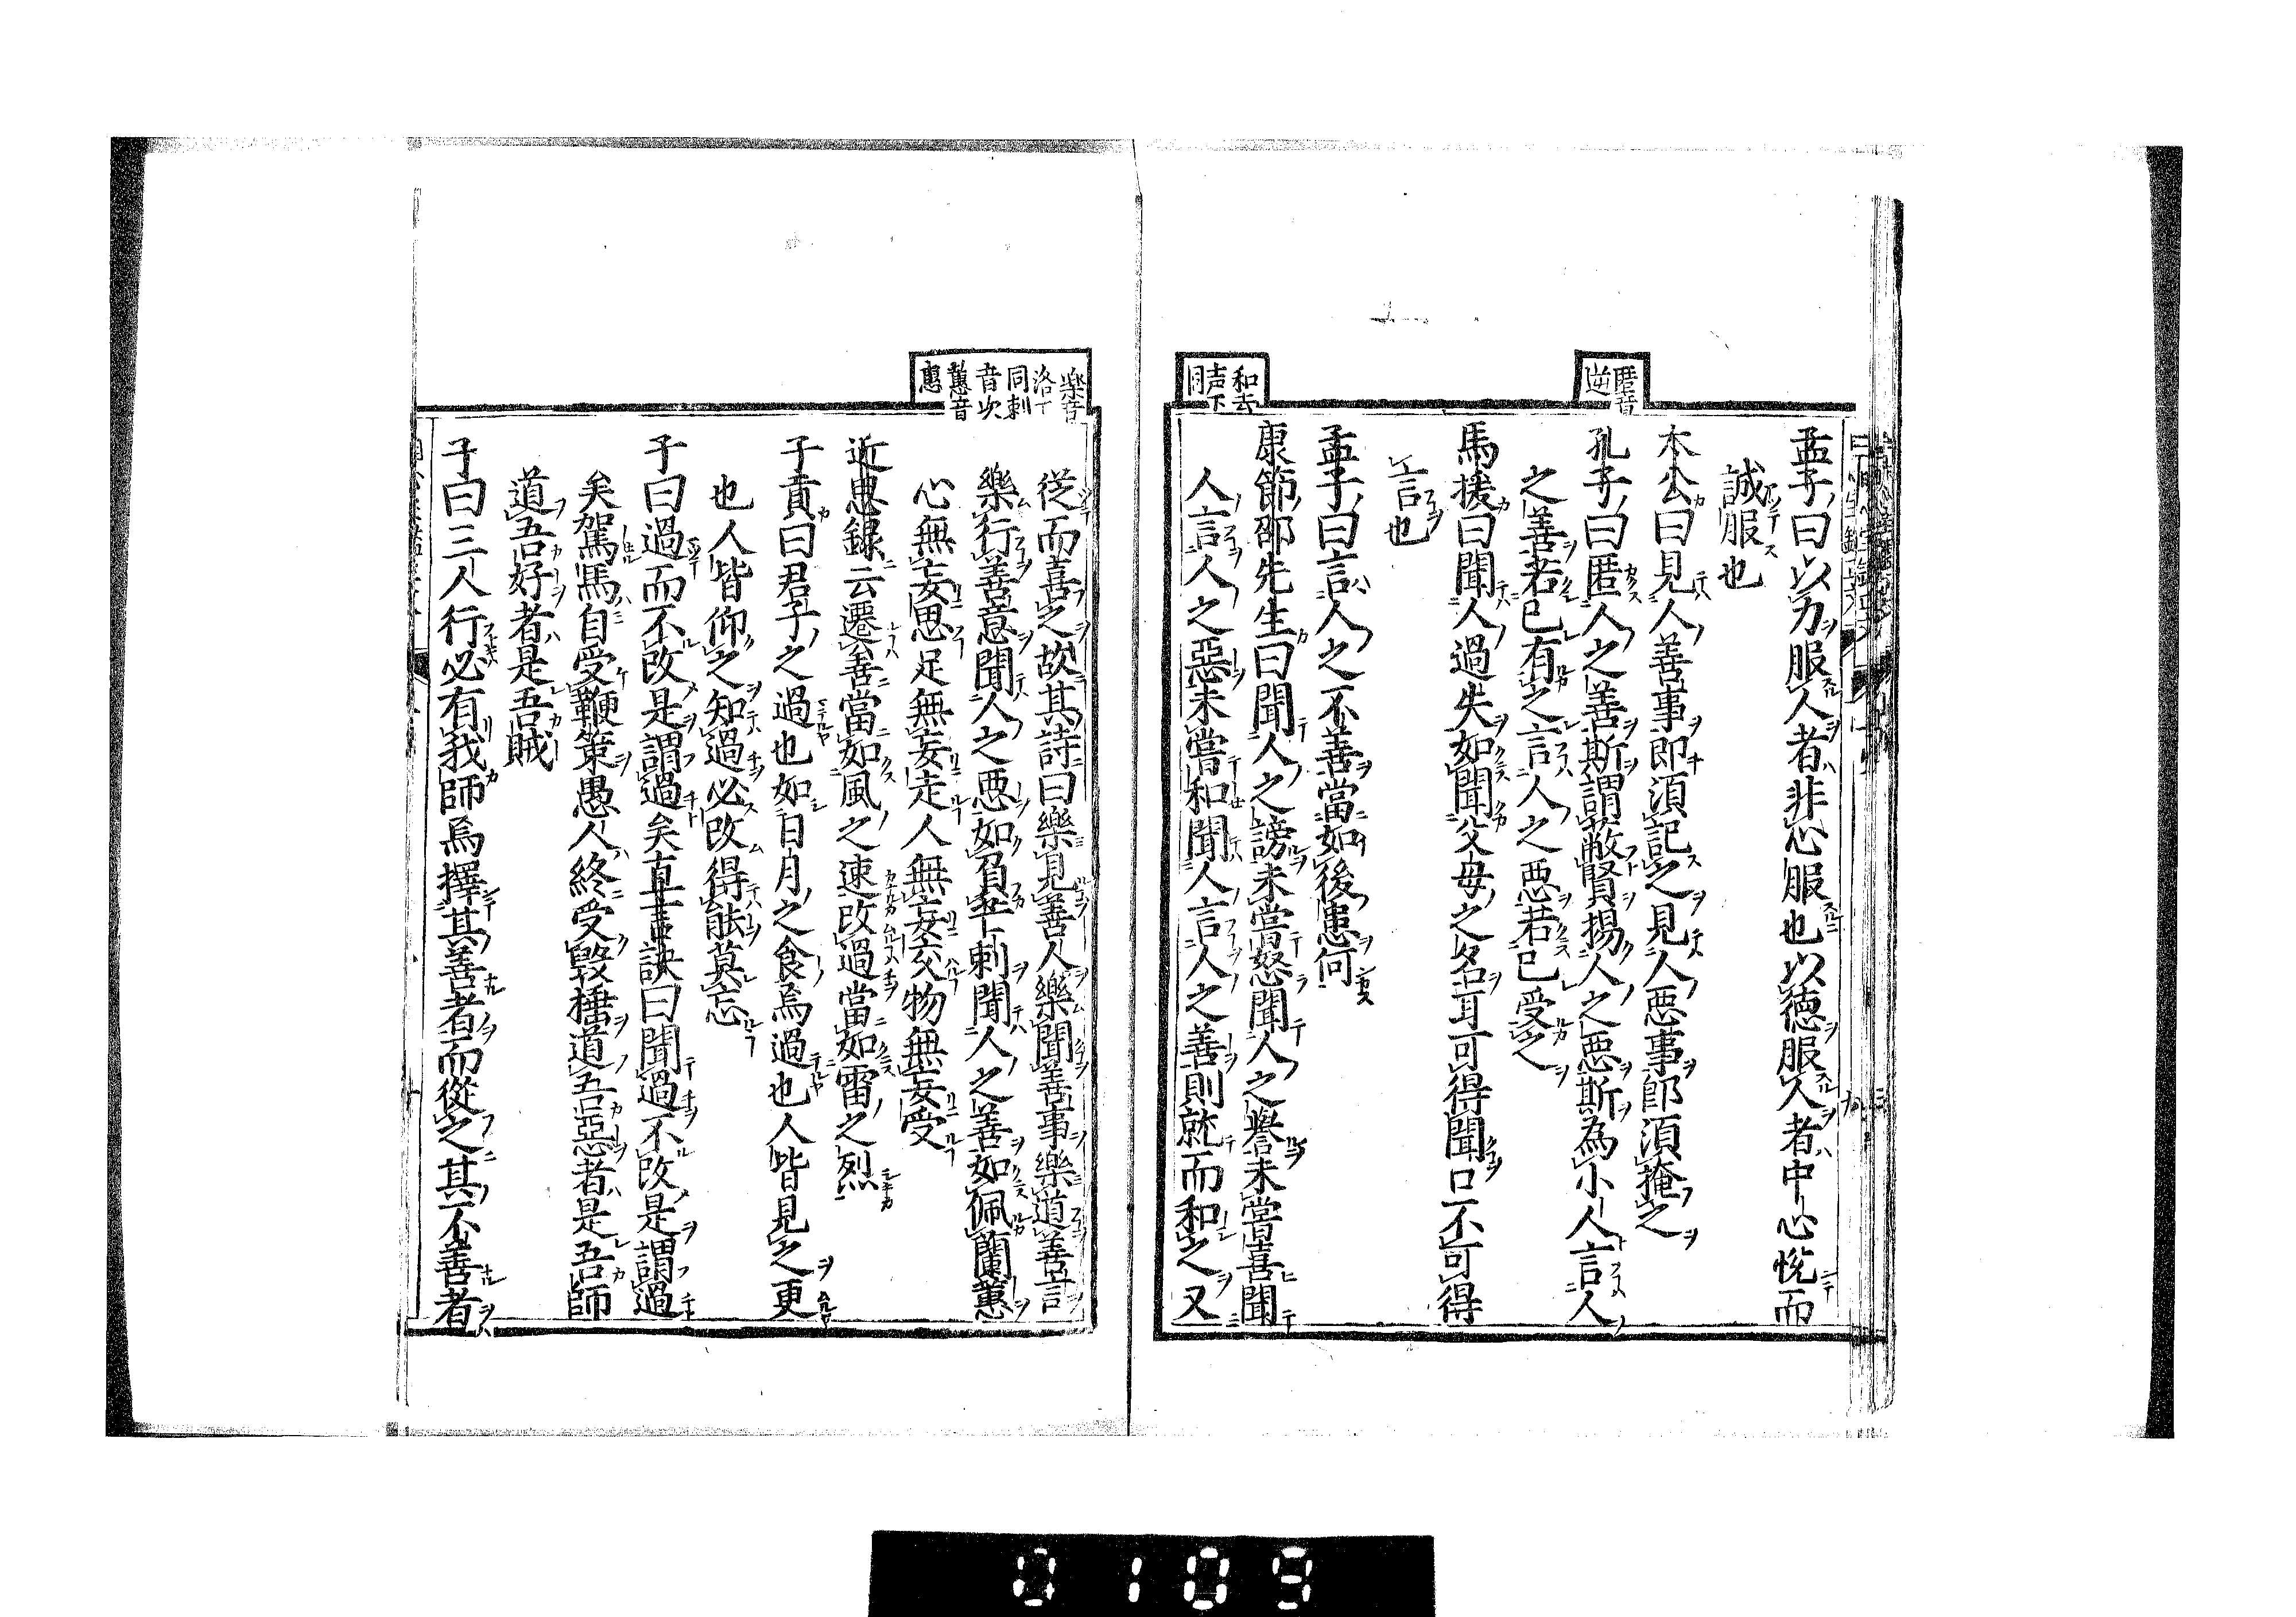 匿音
逆
和去
声下
同
孟子曰以力服人者非心服也以徳服人者中心恱而
誠服也
太公曰見人善事即須記之見人悪事即須掩之
孔子曰匿人之善斯謂蔽賢揚人之悪斯為小人言人
之善若已有之言人之悪若已受之
馬援曰聞人過失如聞父母之名耳可得聞口不可得
言也
孟子曰言人之不善當如後患何
康節邵先生曰聞人之謗未嘗怒聞人之譽未嘗喜聞
人言人之惡未嘗和聞人言人之善則就而和之又
樂音
洛下
同刺
音次
蕙音
惠
従而喜之故其詩曰樂見善人樂聞善事樂道善言
樂行善意聞人之悪如負芒刺聞人之善如佩蘭蕙
心無妄思足無妄走人無妄交物無妄受
近思録云遷善當如風之速改過當如雷之烈
子貢曰君子之過也如日月之食焉過也人皆見之更
也人皆仰之知過必改得能莫忘
子曰過而不改是謂過矣直言訣曰聞過不改是謂過
矣駕馬自受鞭策愚人終受毀捶道吾惡者是吾師
道吾好者是吾賊
子曰三人行必有我師焉擇其善者而從之其不善者
0109